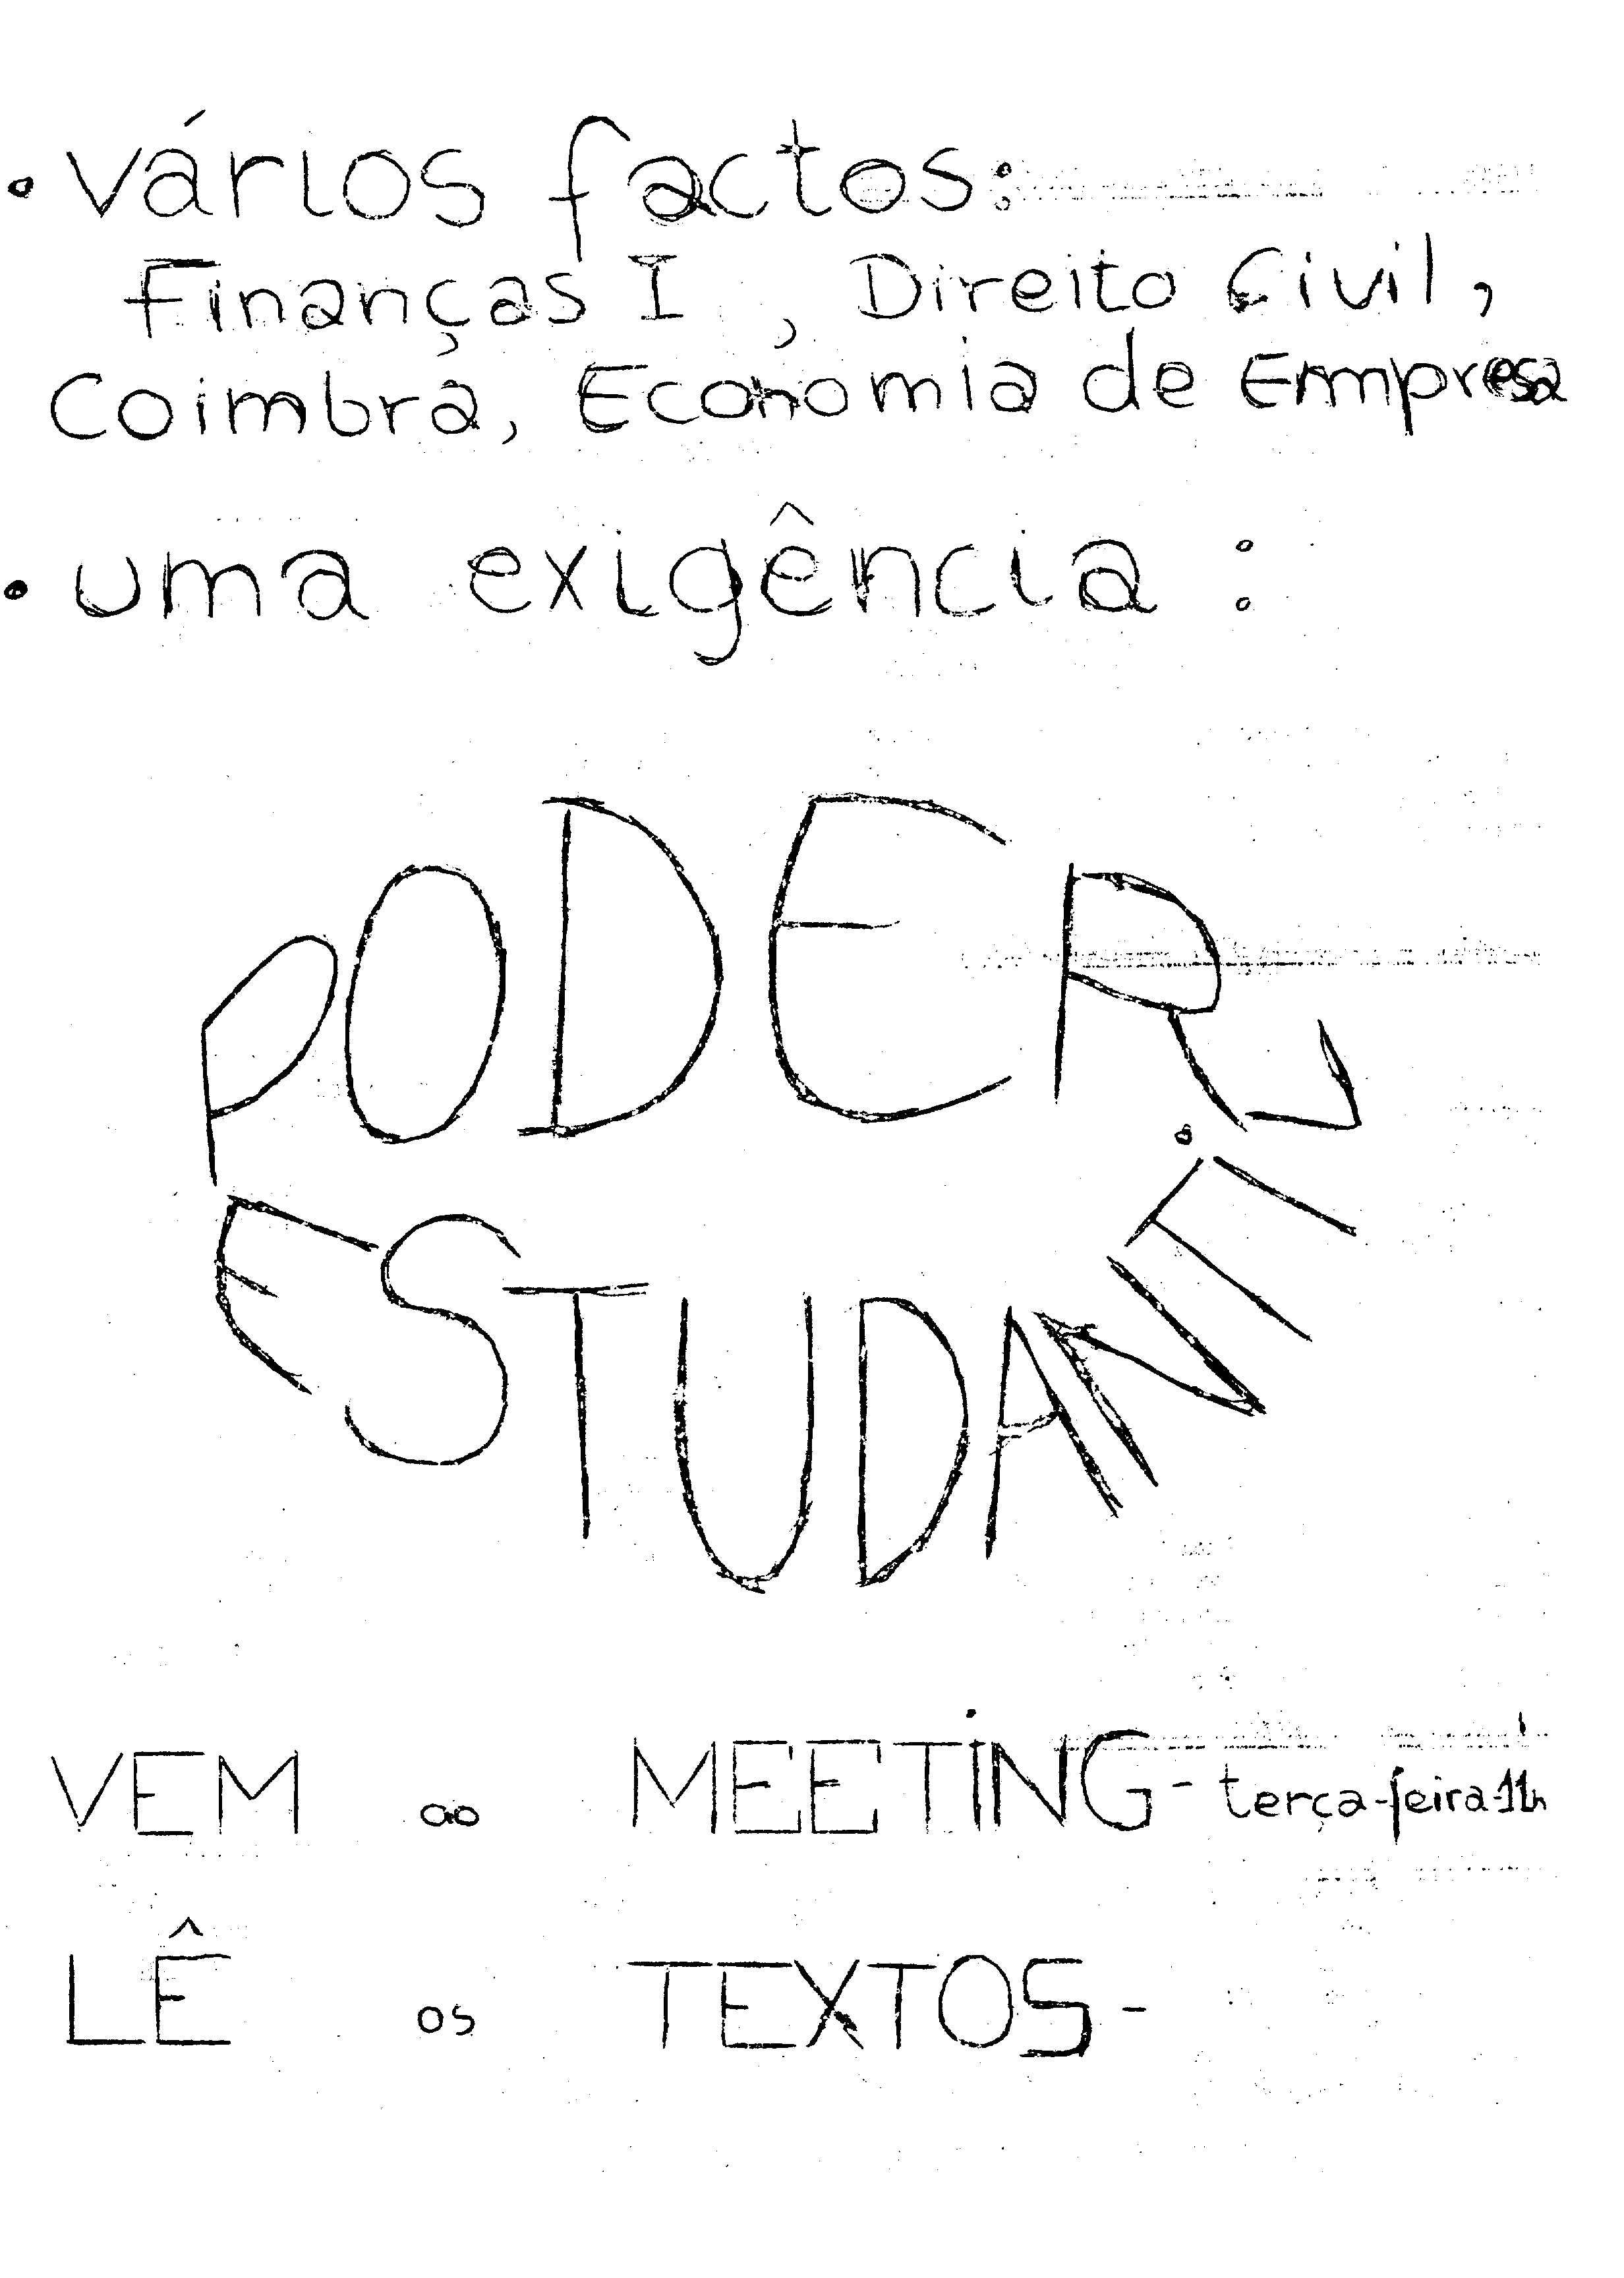 • vários factos:
Finanças I, Direito Civil,
Coimbra, Economia de Empresa
• uma exigência :
PODER
ESTUDANTIL
VEM ao MEETING - terça-feira-11h
LÊ os TEXTOS -